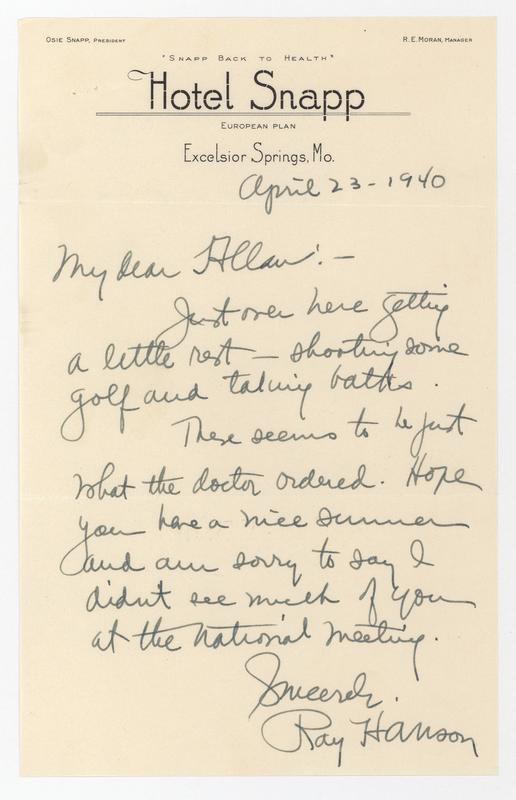 OSIE SNAPP, PRESIDENT
R. E. MORAN, MANAGER
"SNAPP BACK TO HEALTH"
Hotel Snapp
EUROPEAN PLAN
Excelsior Springs, Mo.
April 23 - 1940
My dear Allan: -
Just over here getting
a little rest - shooting some
golf and taking baths.
These seems to be just
what the doctor ordered. Hope
you have a nice summer
and am sorry to say I
didn't see much of you
at the National meeting.
Sincerely.
Ray Hanson